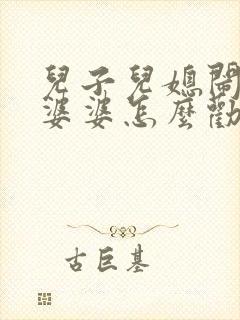 兒子兒媳鬧
婆婆怎麼勸
古巨基